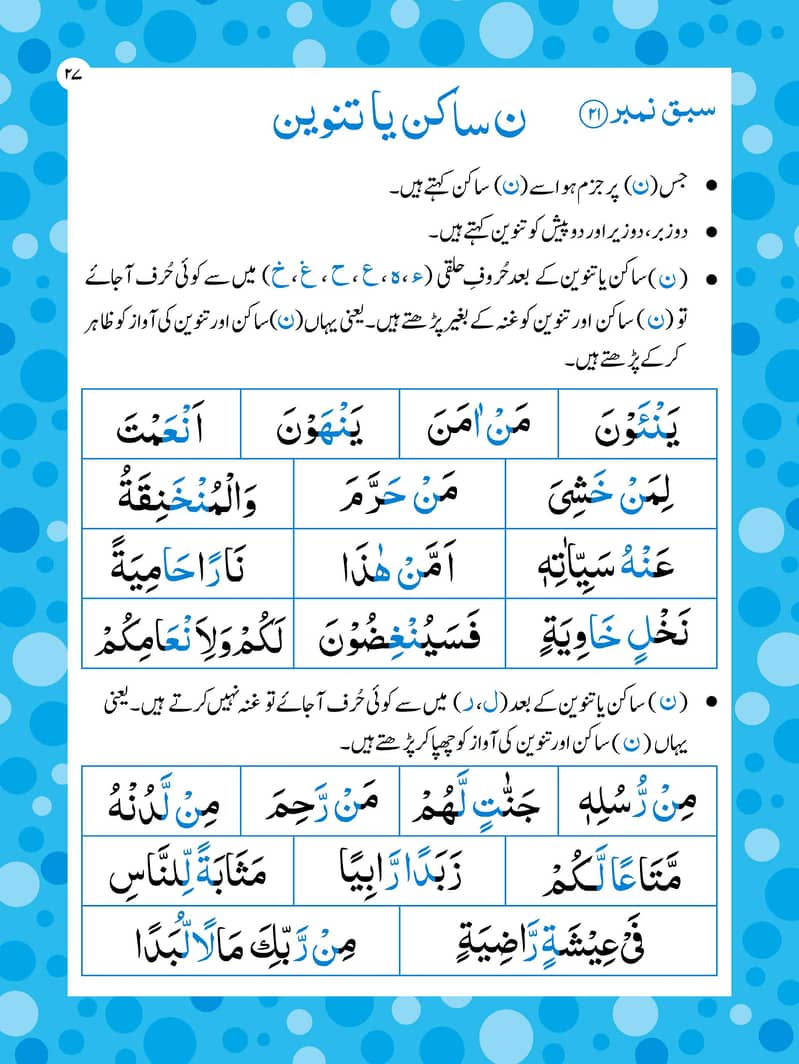 ۲۷
سبق نمبر ۲۱
ن ساکن یا تنوین
• جس (ن) پر جزم ہو اسے (ن) ساکن کہتے ہیں۔
• دو زبر، دو زیر اور دو پیش کو تنوین کہتے ہیں۔
• (ن) ساکن یا تنوین کے بعد حُروفِ حلقی (ء، ہ، ع، ح، غ، خ) میں سے کوئی حُرف آجائے
تو (ن) ساکن اور تنوین کو غنہ کے بغیر پڑھتے ہیں۔ یعنی یہاں (ن) ساکن اور تنوین کی آواز کو ظاہر
کرکے پڑھتے ہیں۔
يَنْئَوْنَ مَنْ اٰمَنَ يَنْهَوْنَ اَنْعَمْتَ
لِمَنْ خَشِيَ مَنْ حَرَّمَ وَالْمُنْخَنِقَةُ
عَنْهُ سَيِّاٰتِهٖ اَمَّنْ هٰذَا نَارًا حَامِيَةً
نَخْلٍ خَاوِيَةٍ فَسَيُنْغِضُوْنَ لَكُمْ وَلِاَنْعَامِكُمْ
• (ن) ساکن یا تنوین کے بعد (ل، ر) میں سے کوئی حُرف آجائے تو غنہ نہیں کرتے ہیں۔ یعنی
یہاں (ن) ساکن اور تنوین کی آواز کو چھپا کر پڑھتے ہیں۔
مِنْ رُّسُلِهٖ جَنّٰتٍ لَّهُمْ مَنْ رَّحِمَ مِنْ لَّدُنْهُ
مَّتَاعًا لَّكُمْ زَبَدًا رَّابِيًا مَثَابَةً لِّلنَّاسِ
فَیْ عِيْشَةٍ رَّاضِيَةٍ مِنْ رَّبِّكَ مَالًا لُّبَدًا